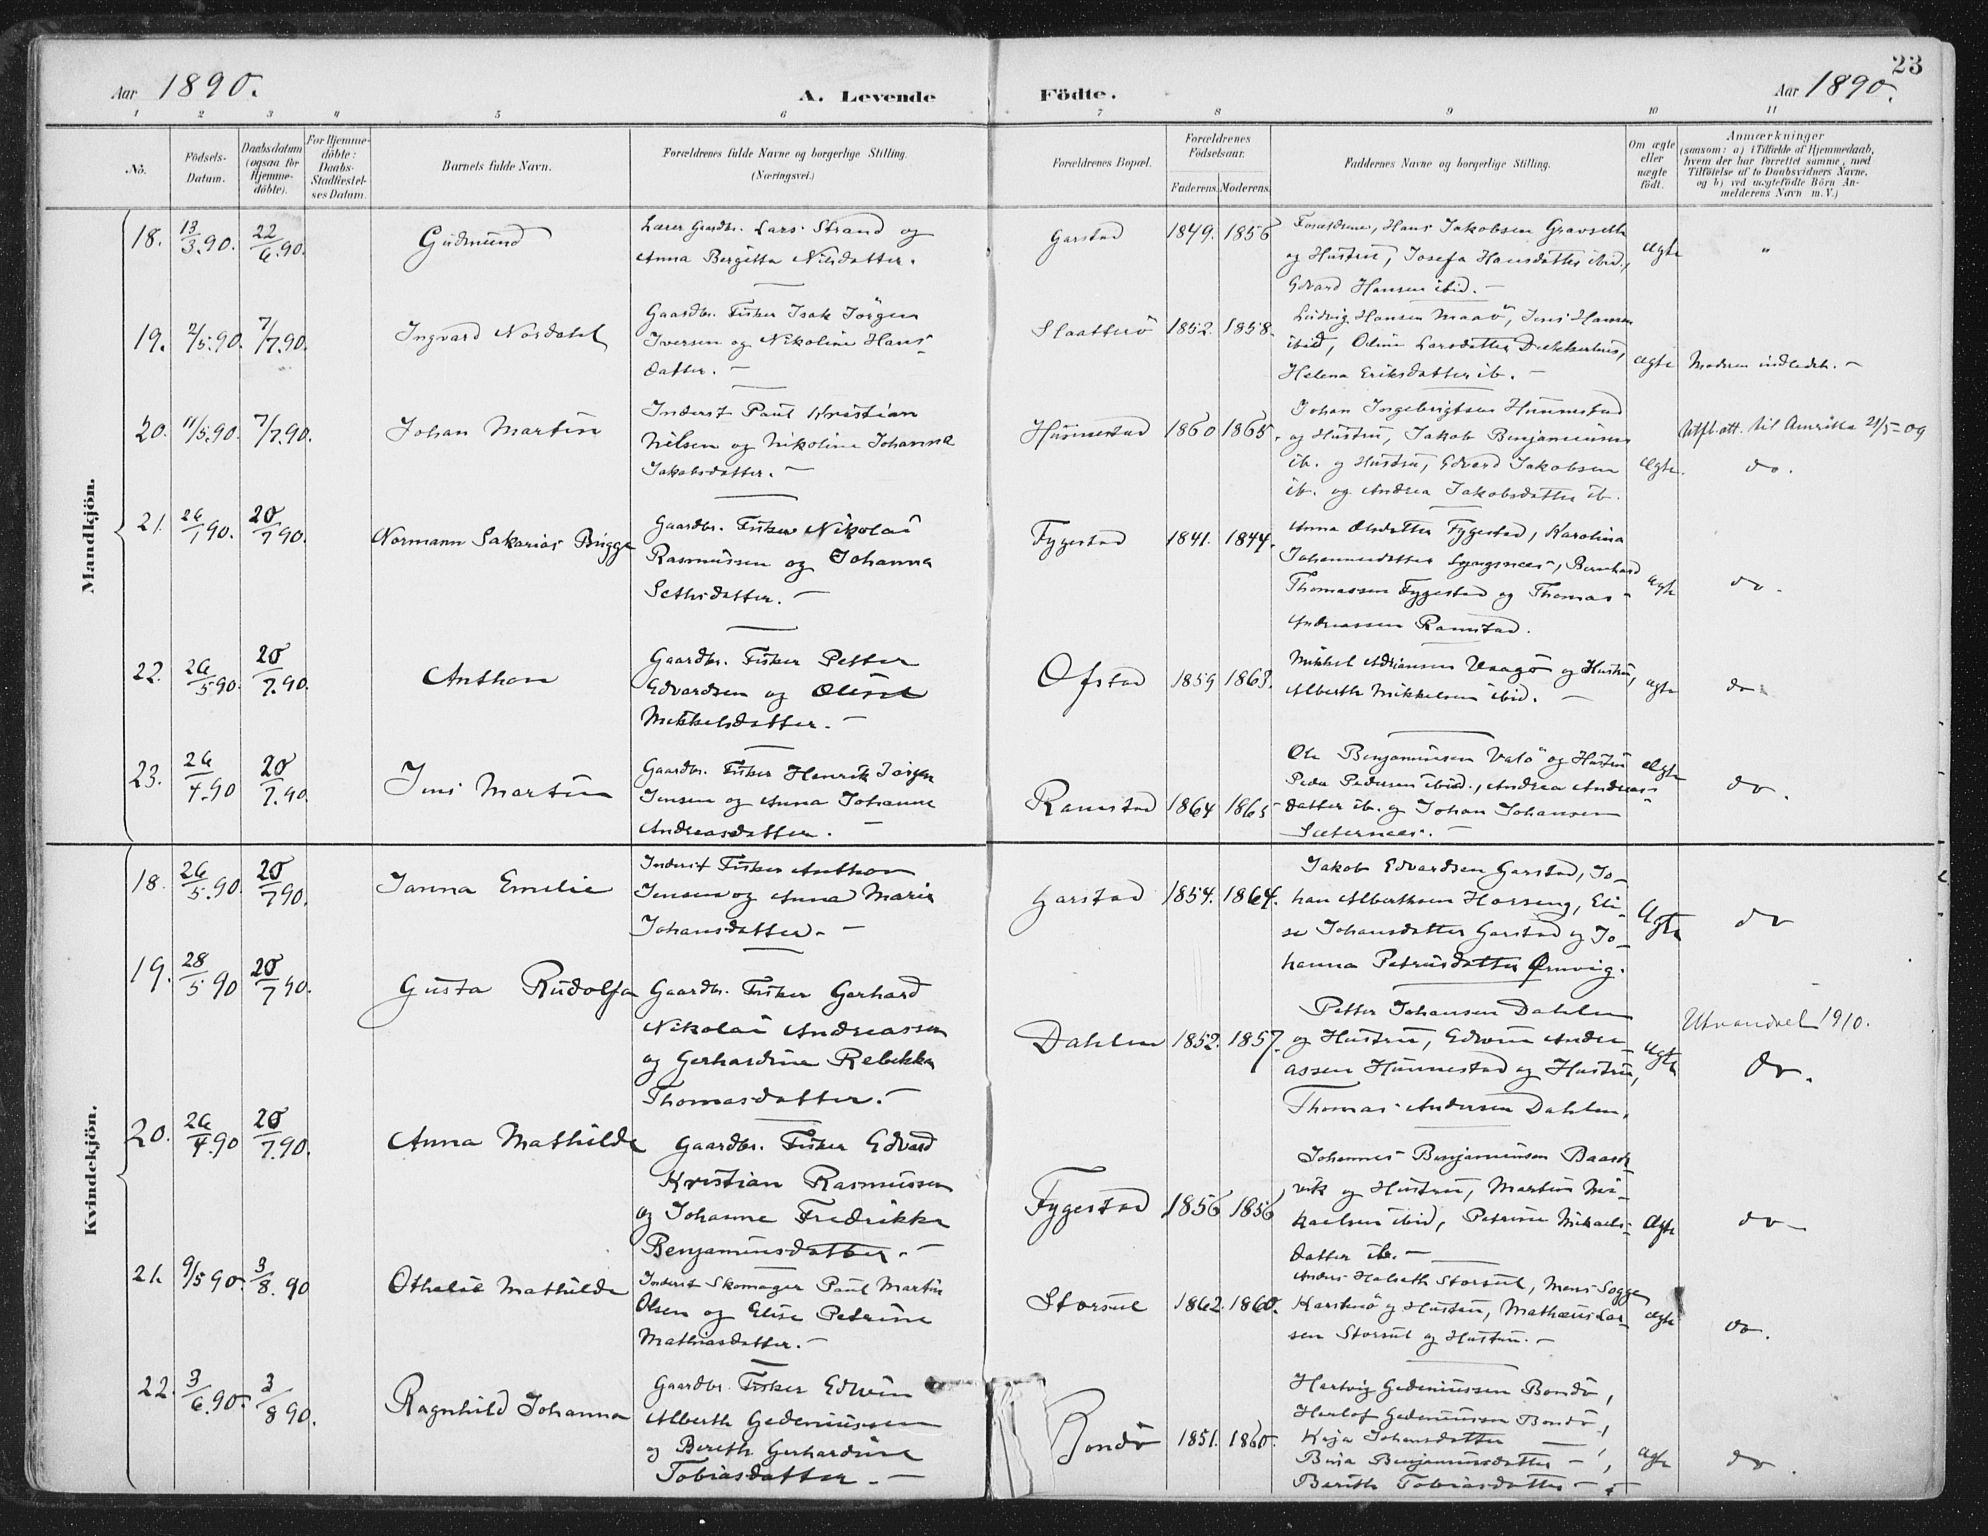 23
Aar 1890.
A. Levende
Födte.
Aar 1890.
1 2 3 4 5 6 7 8 9 10 11
No.
Födsels-
Datum.
Daabsdatum
(ogsaa for
Hjemme-
döbte).
For Hjemme-
döbte:
Daabs-
Stadfæstel-
ses Datum.
Barnets fulde Navn.
Forældrenes fulde Navne og borgerlige Stilling.
(Næringsvei.)
Forældrenes Bopæl.
Forældrenes
Födselsaar.
Faderens. Moderens.
Faddernes Navne og borgerlige Stilling.
Om ægte
eller
uægte
födt.
Anmærkninger
(saasom: a) i Tilfælde af Hjemmedaab,
hvem der har forrettet samme, med
Tilföielse af to Daabsvidners Navne,
og b) ved uægtefödte Börn An-
melderens Navn m. V.)
Mandkjön.
18. 13/3.90. 22/6.90. Gudmund
Lærer Gaardbr. Lars Strand og
Anna Bergitta Nilsdatter. —
Garstad 1849. 1856
Forældrene, Hans Jakobsen Gravseth
og Hustru, Josefa Hansdatter ibid.,
Edvard Hansen ibid. —
ægte "
19. 2/5.90. 7/7.90. Ingvard Nordahl
Gaardbr. Fisker Isak Jörgen
Iversen og Nikoline Hans-
datter. —
Slatterö 1852. 1858.
Ludvig Hansen Maaö, Jens Hansen
ibid, Oline Larsdatter Dekkerhus,
Helena Eriksdatter ib. —
ægte Moderen indledet. —
20. 11/5.90. 7/7.90. Johan Martin
Inderst Paul Kristian
Nilsen og Nikoline Johanna
Jakobsdatter. —
Hunnestad 1860 1865.
Johan Ingebrigtsen Hunnestad
og Hustru, Jakob Benjaminsen
ib. og Hustru, Edvard Jakobsen
ib. og Andrea Jakobsdatter ib.
ægte. Utfl.att. til Amerika 21/5-09
do.
21. 26/1 90. 20/7 90. Normann Sakarias Brigge
Gaardbr. Fisker Nikolai
Rasmussen og Johanna
Sethsdatter. —
Fygestad 1841. 1844.
Anna Olsdatter Fygestad, Karolina
Johannesdatter Lyngsnes, Bernhard
Thomassen Fygestad og Thomas
Andreassen Ramstad.
ægte do.
22. 26/5 90. 20/7.90. Anthon
Gaardbr. Fisker Petter
Edvardsen og Oline
Mikkelsdatter. —
Ofstad 1859 1863.
Mikkel Adriansen Vaagö og Hustru,
Alberth Mikkelsen ibid. —
ægte do
23. 26/4.90 20/7.90 Jens Martin
Gaardbr. Fisker Henrik Jörgen
Jensen og Anna Johanne
Andreasdatter. —
Ramstad 1864 1865
Ole Benjaminsen Valö og Hustru
Peda Pedersen ibid., Andrea Andreas-
datter ib. og Johan Johansen
Sæternes. —
ægte do.
Kvindekjön.
18. 26/5.90. 20/7 90. Janna Emelie
Inderst Fisker Anthon
Jensen og Anna Maria
Johansdatter. —
Garstad 1854. 1864.
Jakob Edvardsen Garstad, Jo-
han Alberthsen Horseng, Eli-
se Johansdatter Garstad og Jo-
hanna Petrusdatter Ørnvig.
Ægte do
19. 28/5 90 20/7 90. Gusta Rudolfa
Gaardbr. Fisker Gerhard
Nikolai Andreassen
og Gerhardine Rebekka
Thomasdatter. —
Dahlen 1852. 1857.
Petter Johansen Dahlen
og Hustru, Edvin Andre-
assen Hunnestad og Hustru,
Thomas Andersen Dahlen.
ægte Utvandret 1910.
do.
20. 26/4.90 20/7.90. Anna Mathilde
Gaardbr. Fisker Edvard
Kristian Rasmussen
og Johanne Fredrikke
Benjaminsdatter. —
Fygestad 1856 1856
Johannes Benjaminsen Baard-
vik og Hustru, Martin Mi-
kaelsen ibid, Petrine Mikaels-
datter ib. —
Ægte do —
21. 9/5 90. 3/8.90 Othelie Mathilde
Inderst Skomager Paul Martin
Olsen og Elise Petrine
Mathiasdatter. —
Storsul 1862. 1860.
Anders Halseth Storsul, Mons Sogge
Karstenö og Hustru, Mathæus Lar-
sen Storsul og Hustru. —
ægte do.
22. 3/6.90. 3/8 90. Ragnhild Johanna
Gaardbr. Fisker Edvin
Alberth Gedeniussen
og Bereth Gerhardine
Tobiasdatter. —
Bondö 1851. 1860.
Hartvig Gedeniussen Bondö,
Herlof Gedeniussen Bondö,
Kaja Johansdatter — ,
Birja Benjaminsdatter — ,
Bereth Tobiasdatter —
ægte do.